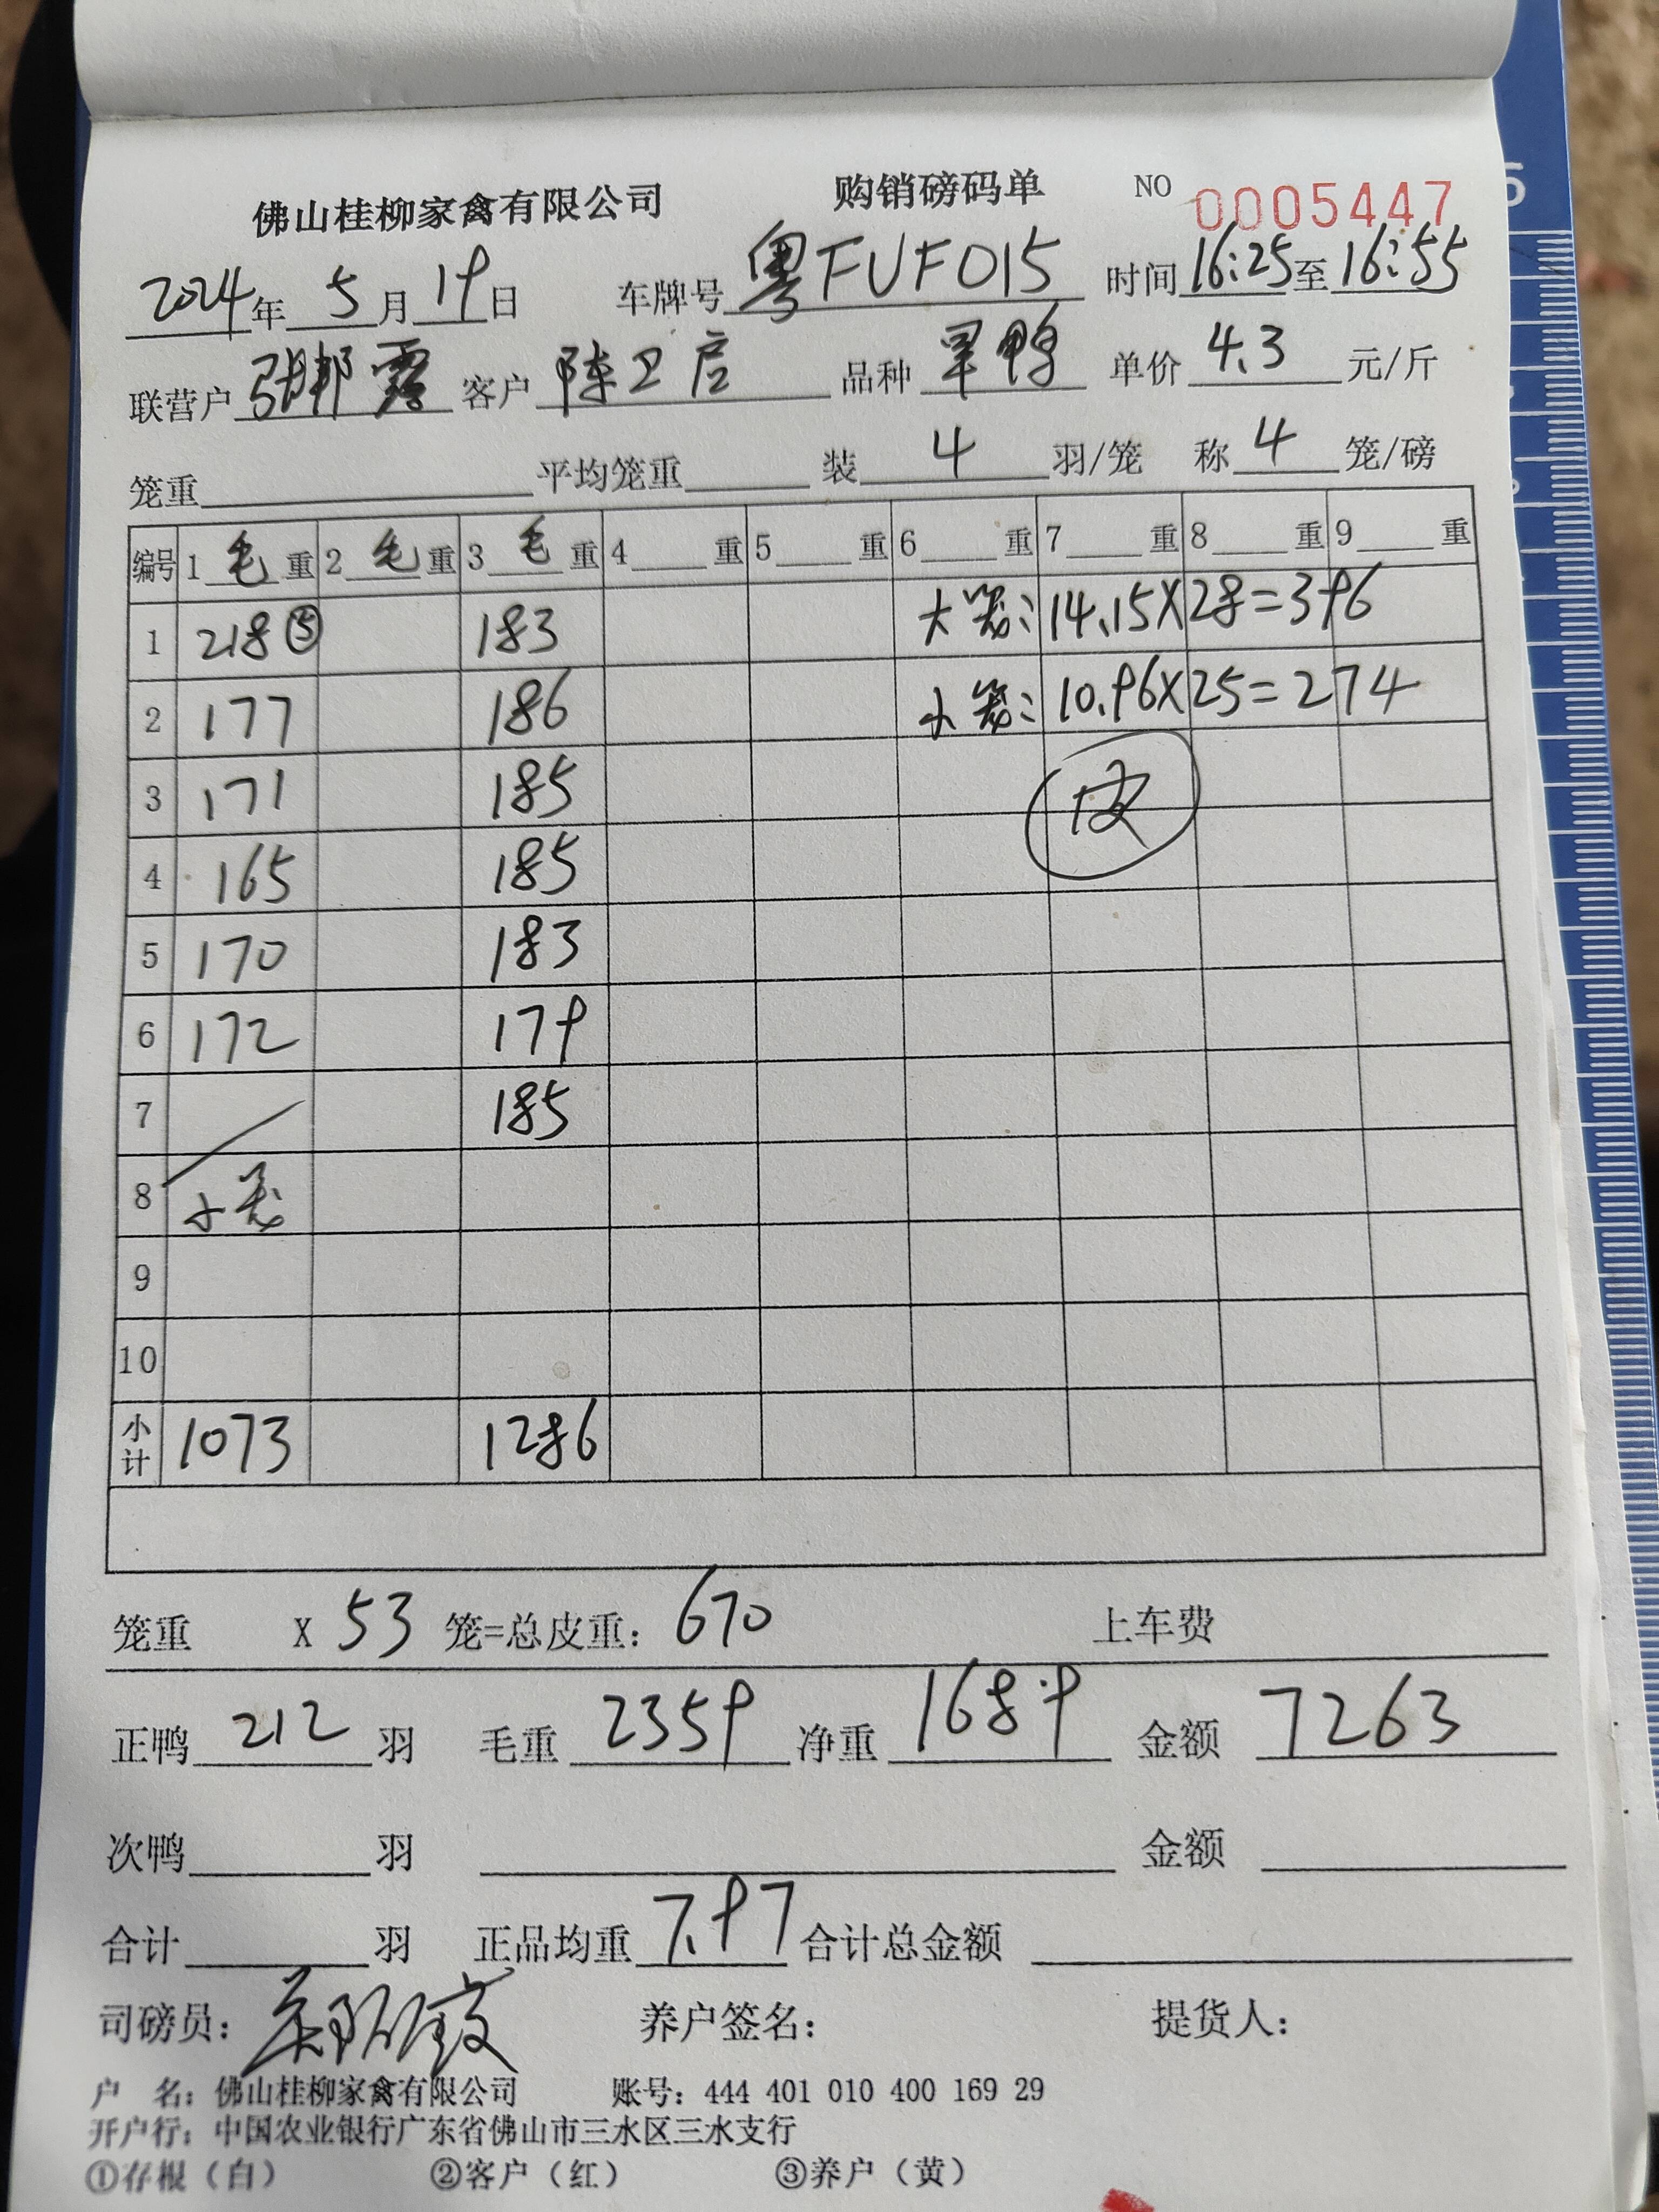 佛山桂柳家禽有限公司 购销磅码单 NO 0005447
2024年 5月 19日 车牌号 粤FUF015 时间 16:25至16:55
联营户 张邦露 客户 陈卫店 品种 旱鸭 单价 4.3 元/斤
笼重 平均笼重 装 4 羽/笼 称 4 笼/磅
编号 1 毛 重 2 毛 重 3 毛 重 4 重 5 重 6 重 7 重 8 重 9 重
1 218⑤ 183 大笼: 14.15X28=396
2 177 186 小笼: 10.96X25=274
3 171 185 皮
4 165 185
5 170 183
6 172 179
7 185
8 小笼
9
10
小计 1073 1286
笼重 X 53 笼=总皮重: 670 上车费
正鸭 212 羽 毛重 2359 净重 1689 金额 7263
次鸭 羽 金额
合计 羽 正品均重 7.97 合计总金额
司磅员: 养户签名: 提货人:
户 名: 佛山桂柳家禽有限公司 账号: 444 401 010 400 169 29
开户行: 中国农业银行广东省佛山市三水区三水支行
①存根（白） ②客户（红） ③养户（黄）